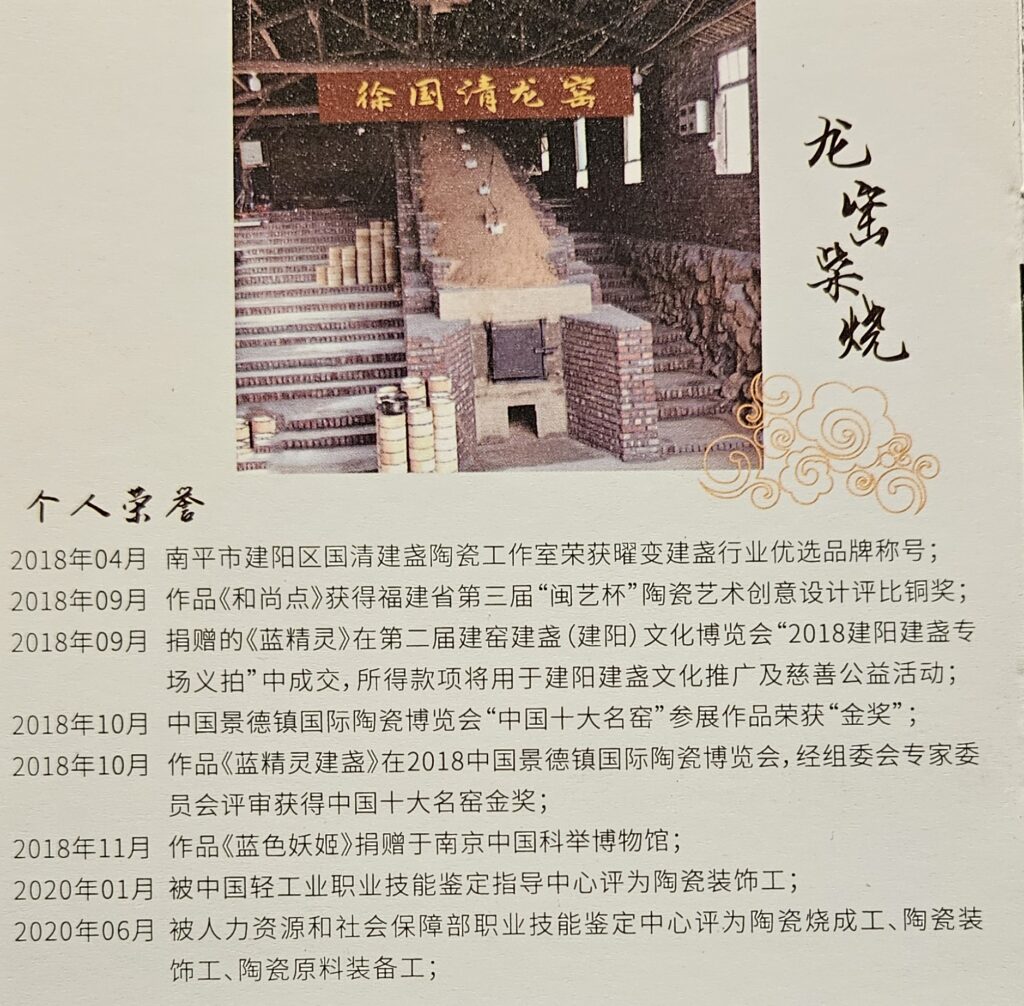 徐国清龙窑
龙窑柴烧
个人荣誉
2018年04月 南平市建阳区国清建盏陶瓷工作室荣获曜变建盏行业优选品牌称号；
2018年09月 作品《和尚点》获得福建省第三届“闽艺杯”陶瓷艺术创意设计评比铜奖；
2018年09月 捐赠的《蓝精灵》在第二届建窑建盏（建阳）文化博览会“2018建阳建盏专
场义拍”中成交，所得款项将用于建阳建盏文化推广及慈善公益活动；
2018年10月 中国景德镇国际陶瓷博览会“中国十大名窑”参展作品荣获“金奖”；
2018年10月 作品《蓝精灵建盏》在2018中国景德镇国际陶瓷博览会，经组委会专家委
员会评审获得中国十大名窑金奖；
2018年11月 作品《蓝色妖姬》捐赠于南京中国科举博物馆；
2020年01月 被中国轻工业职业技能鉴定指导中心评为陶瓷装饰工；
2020年06月 被人力资源和社会保障部职业技能鉴定中心评为陶瓷烧成工、陶瓷装
饰工、陶瓷原料装备工；